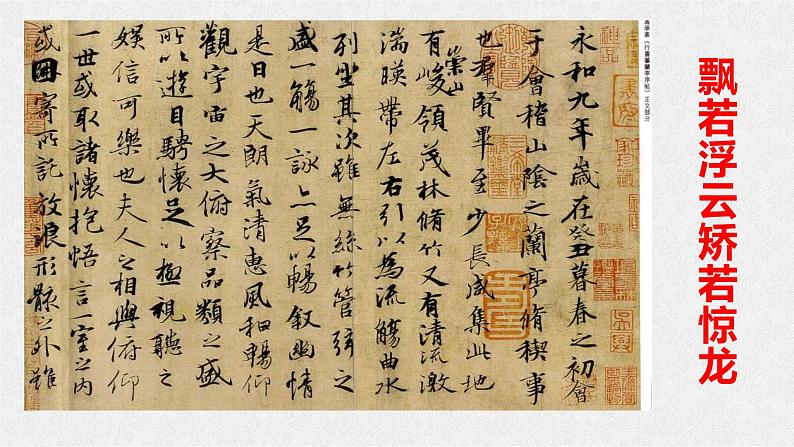 飘若浮云矫若惊龙
冯承素《行书摹兰亭序帖》正文部分
永和九年歲在癸丑暮春之初會
于會稽山陰之蘭亭脩稧事
也羣賢畢至少長咸集此地
有崇山峻領茂林脩竹又有清流激
湍暎帶左右引以為流觴曲水
列坐其次雖無絲竹管弦之
盛一觴一詠亦足以暢敘幽情
是日也天朗氣清惠風和暢仰
觀宇宙之大俯察品類之盛
所以遊目騁懷足以極視聽之
娛信可樂也夫人之相與俯仰
一世或取諸懷抱悟言一室之內
或因寄所託放浪形骸之外雖